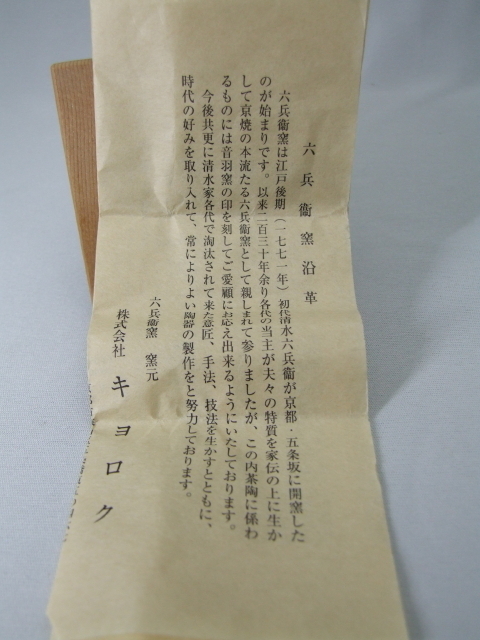 六兵衞窯沿革
六兵衞窯は江戸後期（一七七一年）初代清水六兵衞が京都・五条坂に開窯した
のが始まりです。以来二百三十年余り各代の当主が夫々の特質を家伝の上に生か
して京焼の本流たる六兵衞窯として親しまれて参りましたが、この内茶陶に係わ
るものには音羽窯の印を刻してご愛顧にお応え出来るようにいたしております。
今後共更に清水家各代で淘汰されて来た意匠、手法、技法を生かすとともに、
時代の好みを取り入れて、常によりよい陶器の製作をと努力しております。
六兵衞窯 窯元
株式会社 キョロク